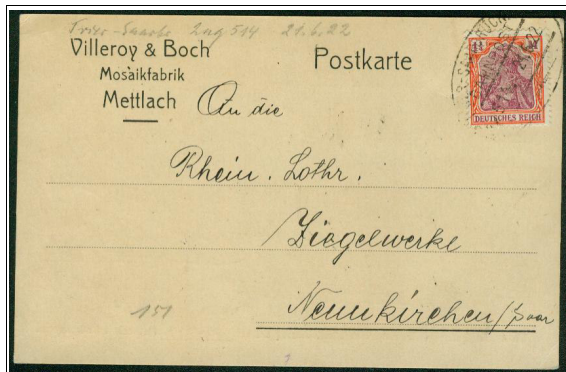 Trier-Saarbr Zug 514 21.6.22
Villeroy & Boch
Mosaikfabrik
Mettlach
Postkarte
DEUTSCHES REICH
An die
Rhein. Lothr.
Ziegelwerke
Neunkirchen/Saar
151